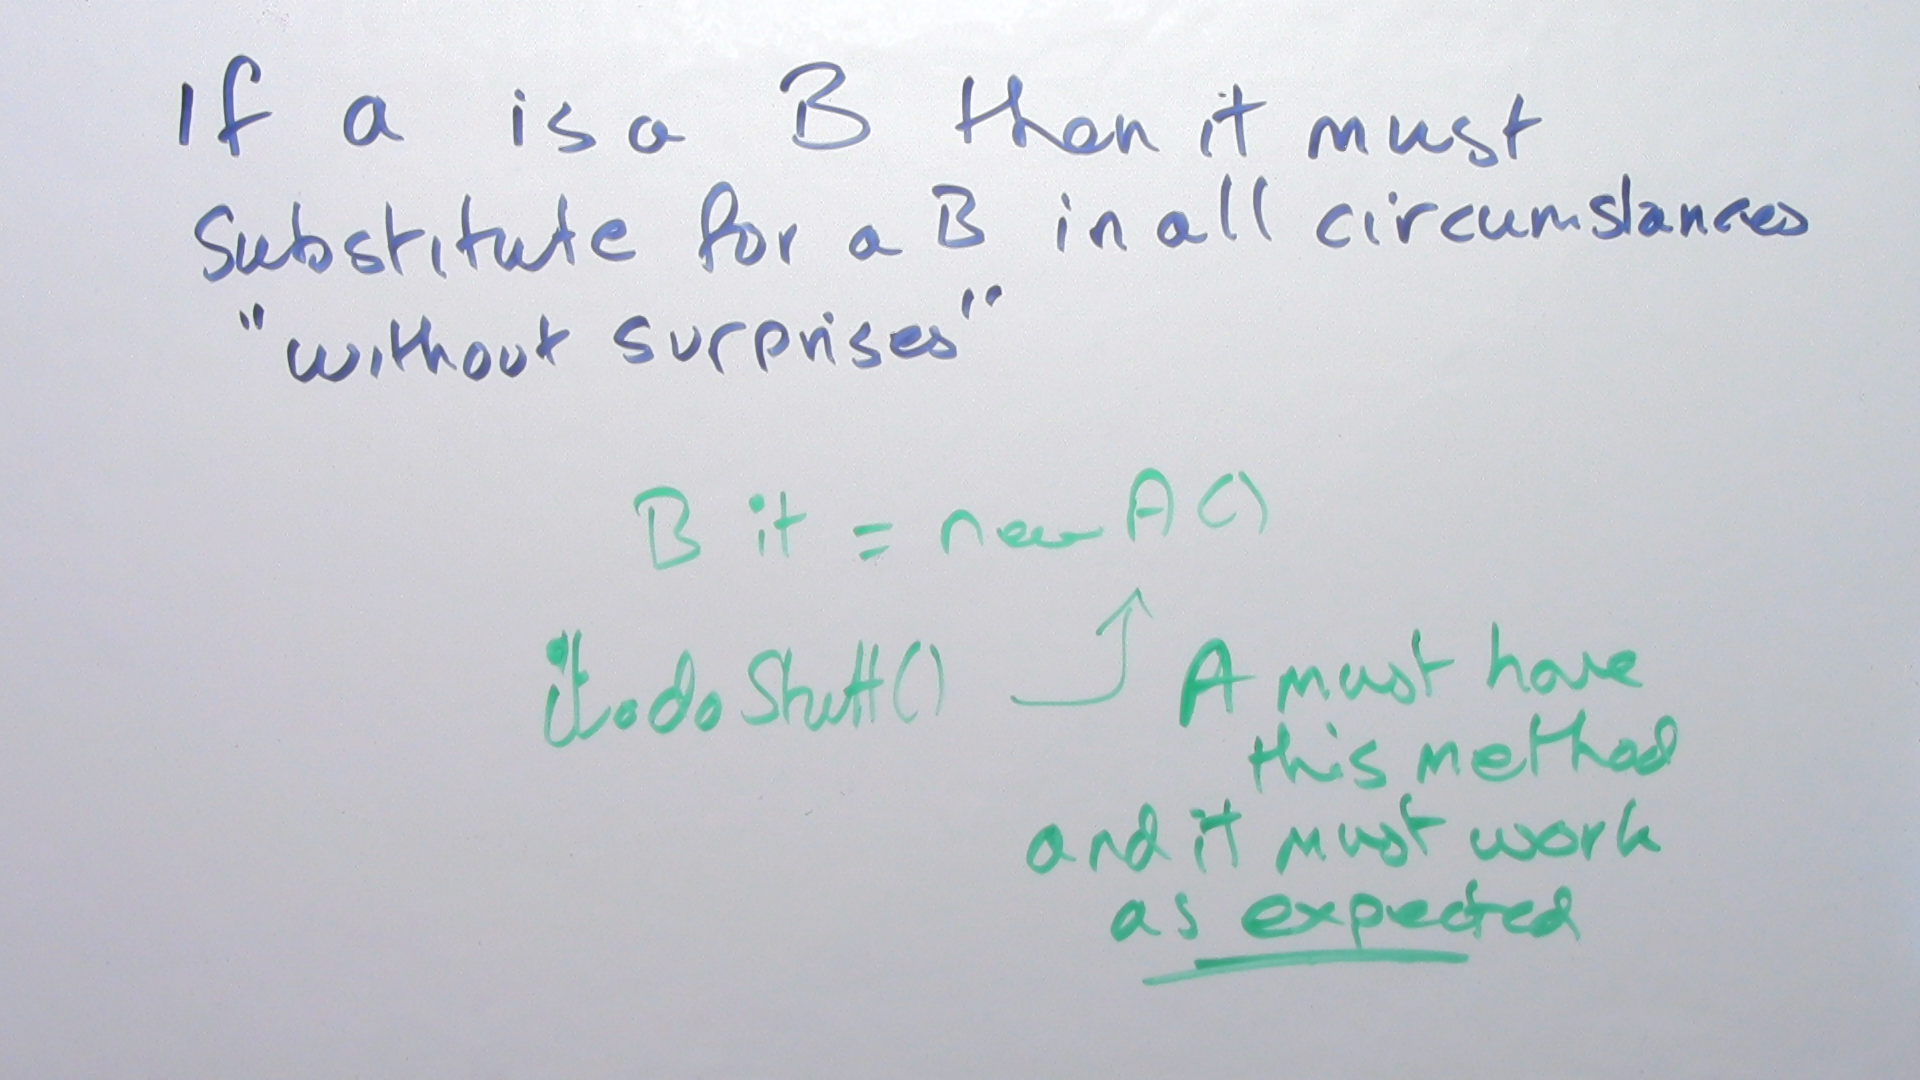 If a is a B then it must
Substitute for a B in all circumstances
"without surprises"
B it = new A()
it.doStuff()
A must have
this method
and it must work
as expected